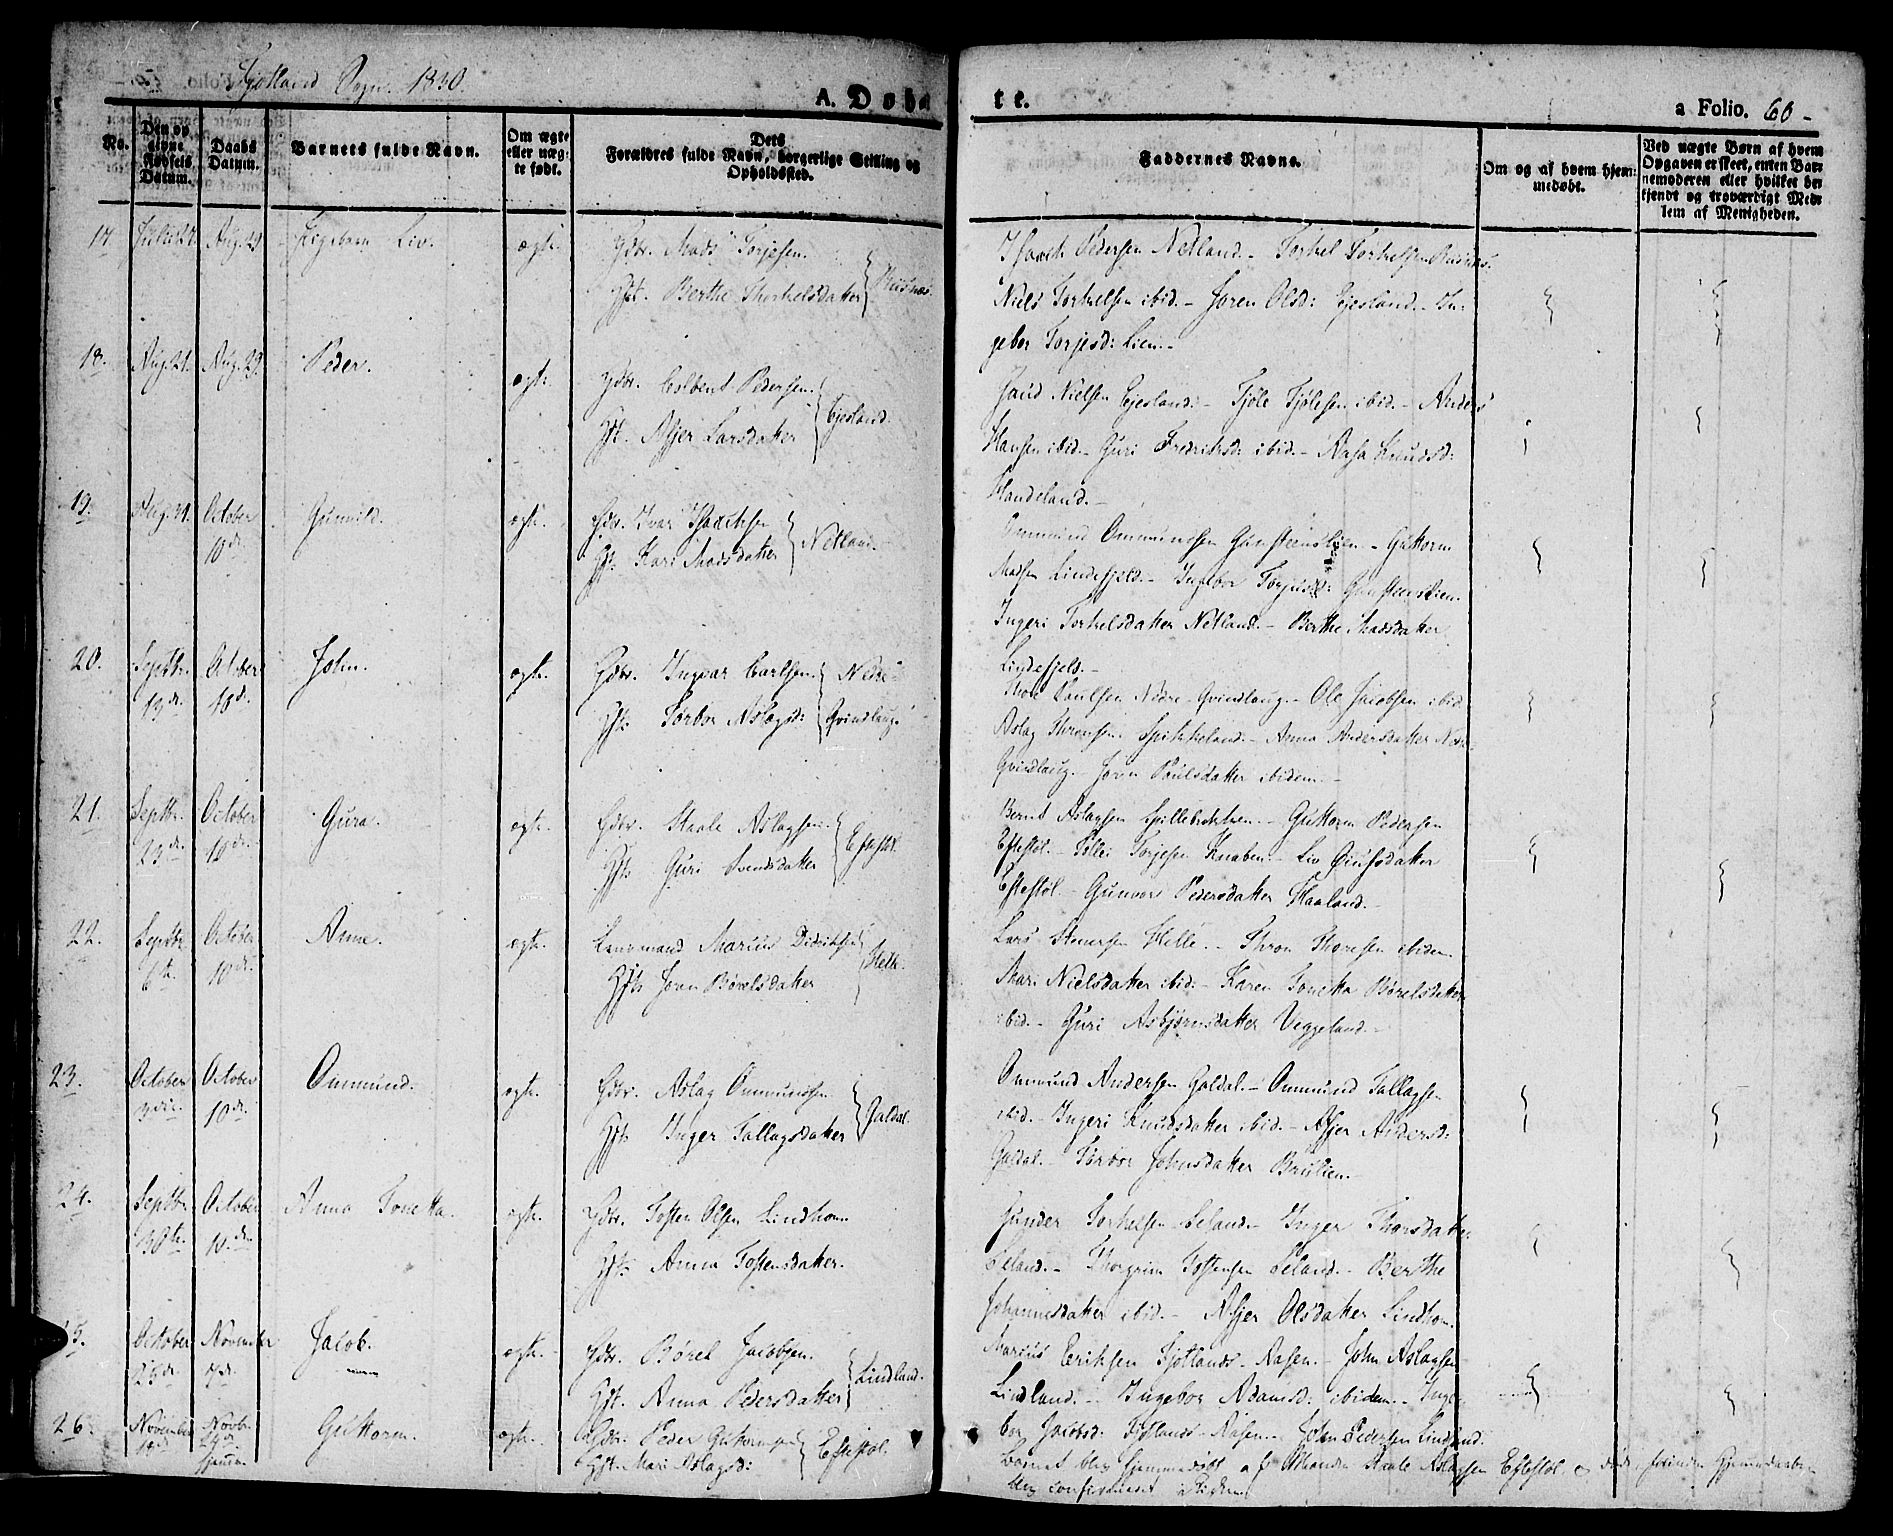 Fjotland Sogn. 1830.
A. Døbte.
a Folio. 60-
No.
Den opgivne Fødsels Datum.
Daabs Datum.
Barnets fulde Navn.
Om ægte eller uægte født.
Dets Forældres fulde Navn, borgerlige Stilling og Opholdssted.
Faddernes Navne.
Om og af hvem hjemmedøbt.
Ved uægte Børn af hvem Opgaven er skeet, enten Barnemoderen eller hvilket bekjendt og troværdigt Medlem af Menigheden.
17. Aug. 29 Liv. ægte. Gdbr. Mads Torjesen.
Hst. Berthe Thorkelsdatter Risnes.
Pedersen Netland. - Torkel Torkelsen Risnes.
Niels Torkelsen ibid. - Joren Olsd: Ejesland. - In-
gebor Torjesd: Lien. -
18. Aug. 21. Aug. 29. Peder. ægte. Gdbr. Pedersen.
Hst. Asjer Larsdatter Ejesland.
Nielsen Ejesland. - Fjøle Fjølesen ibid. - Anders
Hansen ibid. - Guri Fredriksd: ibid. - Aasa Knudsd:
Handeland. -
19. Aug. 31. October 10de. Gunvild. ægte. Gdbr. Ivar Isachsen
Hst. Kari Madsdatter Netland.
Ommund Ommundsen Gunsteinslien. - Guttorm
Madsen Lindefjeld. - Ingebor Torjusd: Gunsteinslien.
Ingeri Torkelsdatter Netland. - Berthe Madsdatter
Lindefjeld. -
20. Septbr. 13de. October 10de. John. ægte. Gdbr. Ingvar Carlsen.
Hst. Torbor Aslagsd: Nedre Qvindlaug.
Thore Paulsen Nedre Qvindlaug. - Ole Jacobsen ibid.
Aslag Thronsen Spikkeland. - Anna Andersdatter Nedre
Qvindlaug. - Joren Paulsdatter ibidem. -
21. Septbr. 23de. October 10de. Gura. ægte. Gdbr. Staale Aslagsen.
Hst. Guri Svendsdatter Eftestøl.
Bernt Aslagsen - Guttorm Pedersen
Eftestøl. - Tollei Torjesen Knaben. - Liv datter
Eftestøl. - Gunvor Pedersdatter Haaland. -
22. Septbr. 6te. October 10de. Anne. ægte. Lensmand Marius Didriksen
Hst. Joren Børelsdatter Helle.
Lars Helle. - Thron Thoresen ibidem.
Mari Nielsdatter ibid. - Karen Tonetta Børelsdatter
ibid. - Guri Asbjørnsdatter Veggeland. -
23. October 3die. October 10de. Ommund. ægte. Gdbr. Aslag Ommundsen
Hst. Inger Tallagsdatter Galdal.
Ommund Andersen Galdal. - Ommund Tallagsen
ibid. - Ingeri Knudsdatter ibid. - Asjer Andersd:
Galdal. Torbor Johnsdatter Brulien. -
24. Septbr. 30te. October 10.de. Anna Tonetta. ægte. Gdbr. Tosten Olsen Lindhom.
Hst. Anna Tostensdatter.
Gunder Torkelsen - Inger Thorsdatter
Thorgrim Tostensen - Berthe
Johannesdatter ibid. - Asjer Olsdatter Lindhom.
October 25de. November 7de. Jacob. ægte. Gdbr. Børel Jacobsen.
Hst. Anna Pedersdatter Lindland.
Marius Eriksen Fjotlands-Aasen. - John Aslagsen
Lindland. - Ingebor Adamsd: ibidem. - Inge-
bor Jacobsd: Fjotlands-Aasen. - John Pedersen Lindland.
26. November Novbr. Guttorm. ægte. Gdbr. Peder Guttormsen
Hst. Mari Aslagsd: Eftestøl.
Barnet blev hjemmedøbt af Staale Aslagsen Eftestøl
blev confirmeret i Kirken